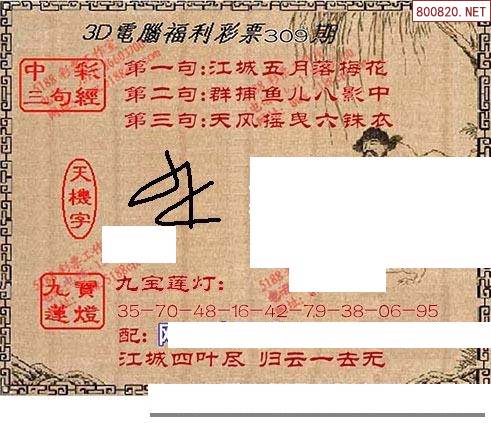 800820.NET
3D電腦福利彩票309期
中彩
三句經
第一句:江城五月落梅花
第二句:群捕鱼儿八影中
第三句:天风摇曳六铢衣
天機字
九寶
蓮燈
九宝莲灯:
35-70-48-16-42-79-38-06-95
配:
江城四叶尽 归云一去无